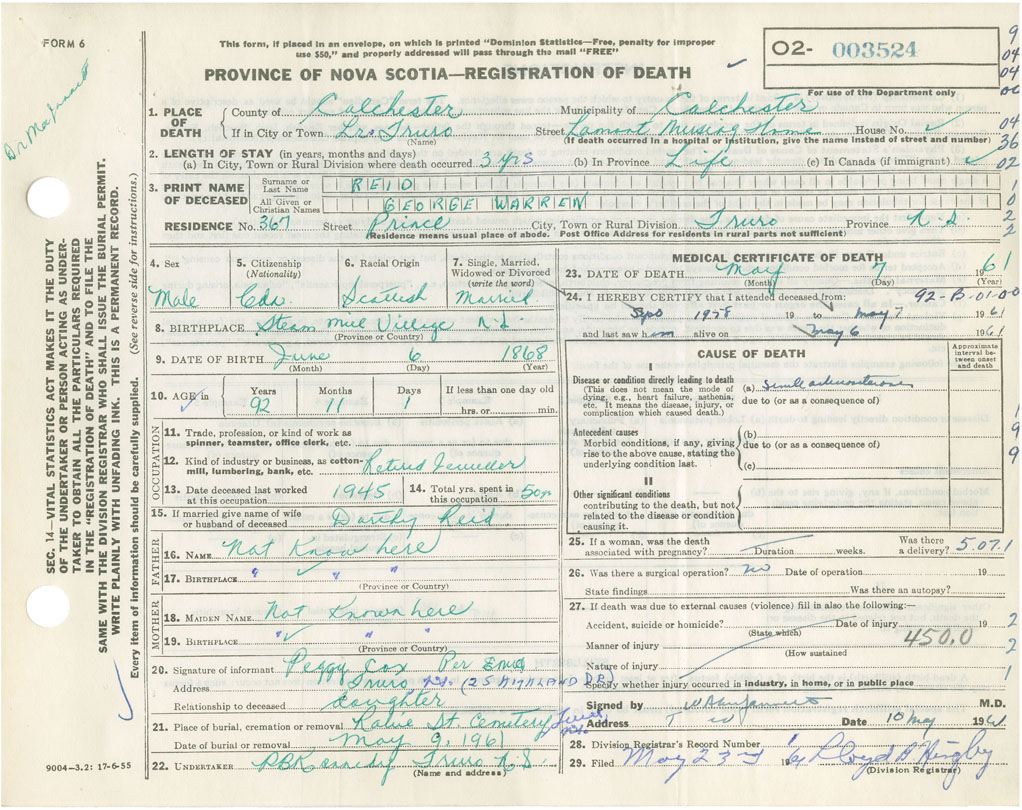 FORM 6
This form, if placed in an envelope, on which is printed "Dominion Statistics—Free, penalty for improper
use $50," and properly addressed will pass through the mail "FREE"
PROVINCE OF NOVA SCOTIA—REGISTRATION OF DEATH
02- 003524
For use of the Department only
9
04
04
1. PLACE OF DEATH
County of Colchester Municipality of Colchester
If in City or Town Truro Street Nursing Home House No.
(Name) (If death occurred in a hospital or institution, give the name instead of street and number)
04
36
02
2. LENGTH OF STAY (in years, months and days)
(a) In City, Town or Rural Division where death occurred 3 yrs (b) In Province Life (c) In Canada (if immigrant)
3. PRINT NAME OF DECEASED
Surname or Last Name REID
All Given or Christian Names GEORGE WARREN
1
0
2
2
RESIDENCE No. 367 Street Prince City, Town or Rural Division Truro Province N.S.
(Residence means usual place of abode. Post Office Address for residents in rural parts not sufficient)
4. Sex
Male
5. Citizenship
(Nationality)
Cdn.
6. Racial Origin
Scottish
7. Single, Married,
Widowed or Divorced
(write the word)
Married
8. BIRTHPLACE Steam Mill Village N.S.
(Province or Country)
9. DATE OF BIRTH June 6 1868
(Month) (Day) (Year)
10. AGE in
Years Months Days If less than one day old
92 11 1 hrs. or min.
OCCUPATION
11. Trade, profession, or kind of work as
spinner, teamster, office clerk, etc.
12. Kind of industry or business, as cotton-
mill, lumbering, bank, etc. Retired Jeweler
13. Date deceased last worked
at this occupation 1945
14. Total yrs. spent in
this occupation 50 yr
15. If married give name of wife
or husband of deceased Dorothy Reid
FATHER
16. NAME Not Know here
17. BIRTHPLACE " " "
(Province or Country)
MOTHER
18. MAIDEN NAME Not Known here
19. BIRTHPLACE " " "
(Province or Country)
20. Signature of informant Peggy Cox Per
Address Truro N.S. (25 AMALAND DR)
Relationship to deceased daughter
21. Place of burial, cremation or removal St Cemetery Truro
Date of burial or removal May 9, 1961
22. UNDERTAKER Kennedy Truro N.S.
(Name and address)
MEDICAL CERTIFICATE OF DEATH
23. DATE OF DEATH May 7 1961
(Month) (Day) (Year)
24. I HEREBY CERTIFY that I attended deceased from: 92-B-01-0-0
1958 19 to May 7 1961
and last saw him alive on May 6 1961
CAUSE OF DEATH
Approximate interval between onset and death
I
Disease or condition directly leading to death
(This does not mean the mode of
dying, e.g., heart failure, asthenia,
etc. It means the disease, injury, or
complication which caused death.)
(a)
due to (or as a consequence of)
Antecedent causes
Morbid conditions, if any, giving
rise to the above cause, stating the
underlying condition last.
(b)
due to (or as a consequence of)
(c)
1
9
9
II
Other significant conditions
contributing to the death, but not
related to the disease or condition
causing it.
25. If a woman, was the death
associated with pregnancy? Duration weeks.
Was there
a delivery? 5.07.1
26. Was there a surgical operation? no Date of operation 19
State findings Was there an autopsy?
27. If death was due to external causes (violence) fill in also the following:—
Accident, suicide or homicide? Date of injury 19
(State which)
2
Manner of injury 450.0
(How sustained)
2
Nature of injury
1
Specify whether injury occurred in industry, in home, or in public place
Signed by M.D.
Address Date 10 May 1961
28. Division Registrar's Record Number
29. Filed May 23 19
(Division Registrar)
SEC. 14—VITAL STATISTICS ACT MAKES IT THE DUTY
OF THE UNDERTAKER OR PERSON ACTING AS UNDER-
TAKER TO OBTAIN ALL THE PARTICULARS REQUIRED
IN THE "REGISTRATION OF DEATH" AND TO FILE THE
SAME WITH THE DIVISION REGISTRAR WHO SHALL ISSUE THE BURIAL PERMIT.
WRITE PLAINLY WITH UNFADING INK. THIS IS A PERMANENT RECORD.
Every item of information should be carefully supplied. (See reverse side for instructions.)
9004—3.2: 17-6-55